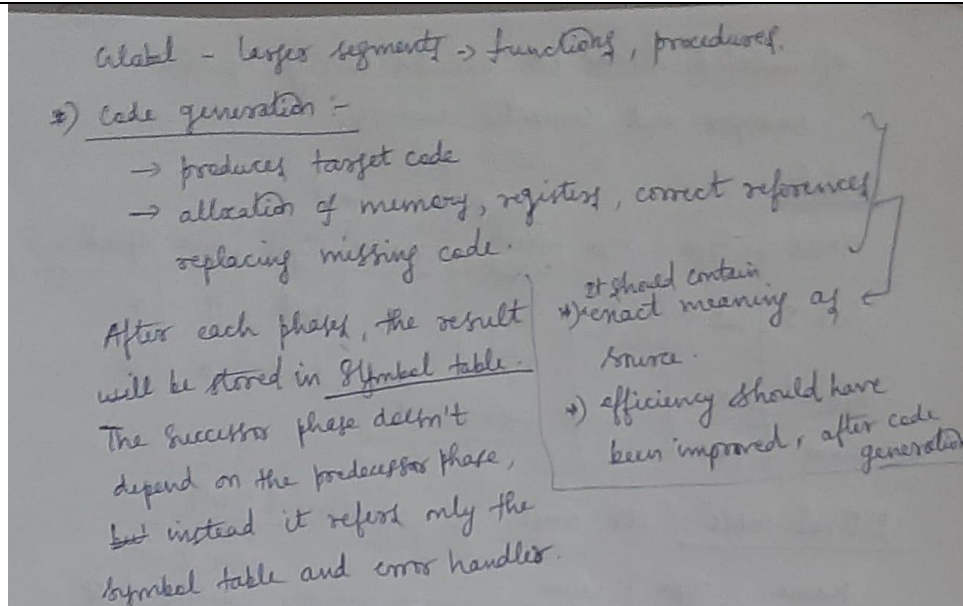 Global - larger segments → functions, procedures.
*) Code generation :-
→ produces target code
→ allocation of memory, registers, correct references
replacing missing code.
After each phases, the result
will be stored in Symbol table.
The Successor phase doesn't
depend on the predecessor phase,
but instead it refers only the
symbol table and error handler.
It should contain
*) exact meaning as
source.
*) efficiency should have
been improved, after code
generation